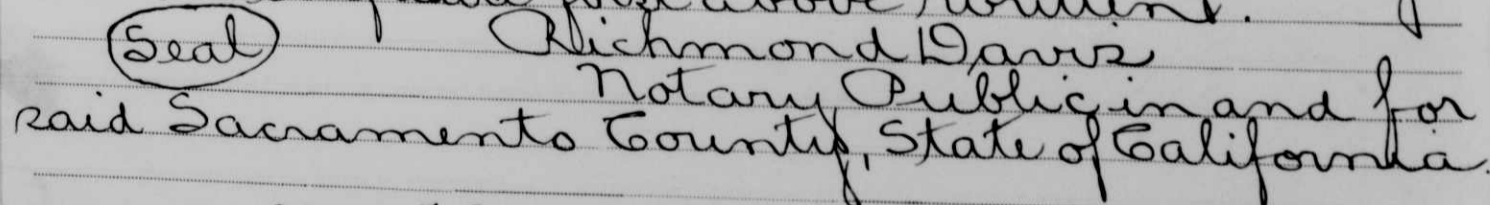 above written.
Seal Richmond Davis
Notary Public in and for
said Sacramento County, State of California.